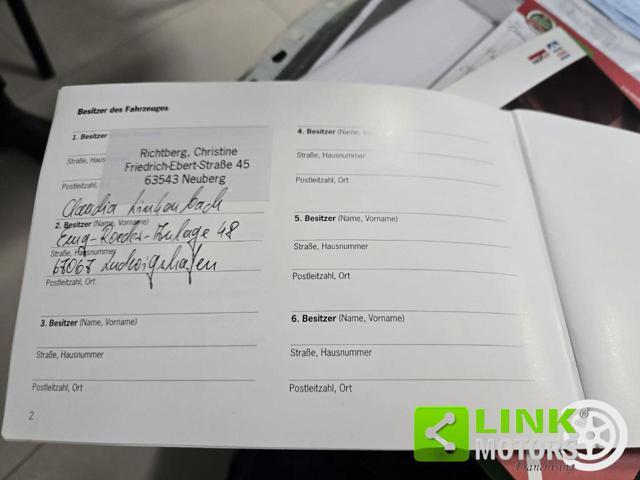 Besitzer des Fahrzeuges
1. Besitzer
Richtberg, Christine
Straße, Haus
Friedrich-Ebert-Straße 45
Postleitzahl,
63543 Neuberg
Claudia
2. Besitzer (Name, Vorname)
48
Straße, Hausnummer
67067 Ludwigshafen
Postleitzahl, Ort
3. Besitzer (Name, Vorname)
Straße, Hausnummer
Postleitzahl, Ort
2
4. Besitzer (Name, Vorname)
Straße, Hausnummer
Postleitzahl, Ort
5. Besitzer (Name, Vorname)
Straße, Hausnummer
Postleitzahl, Ort
6. Besitzer (Name, Vorname)
Straße, Hausnummer
Postleitzahl, Ort
LINK
MOTORS
Franchising